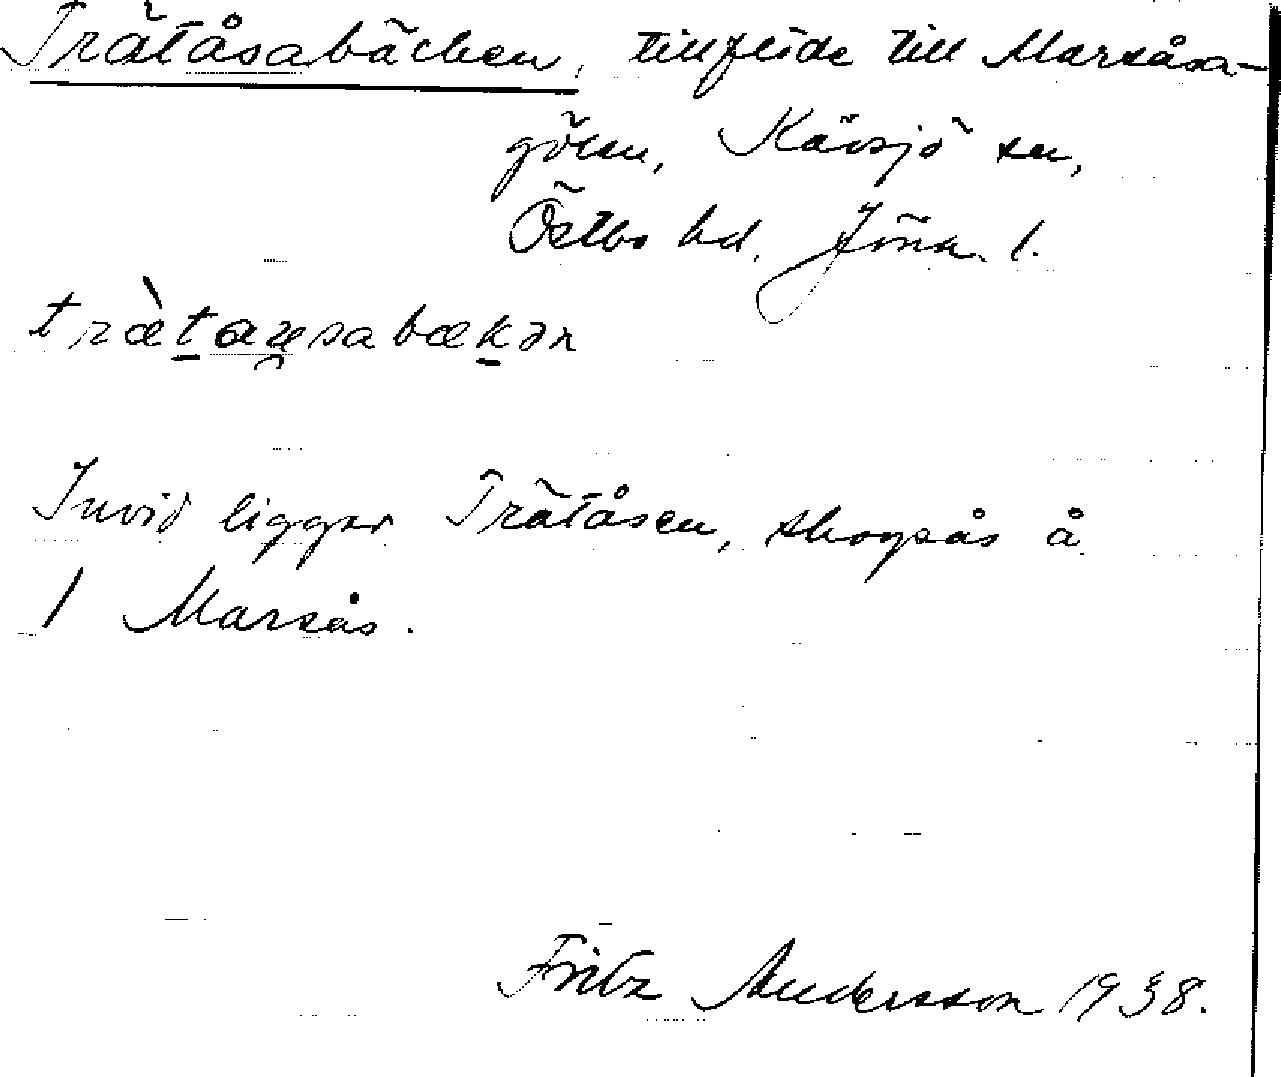 Trätåsabäcken, tillflöde till Marsåsa-
gölen, Kävsjö sn,
Östbo hd. Jönk. l.
træ̀taɷsabækən
Invid ligger Trätåsen, skogsås å
1 Marsås.
Fritz Andersson 1938.